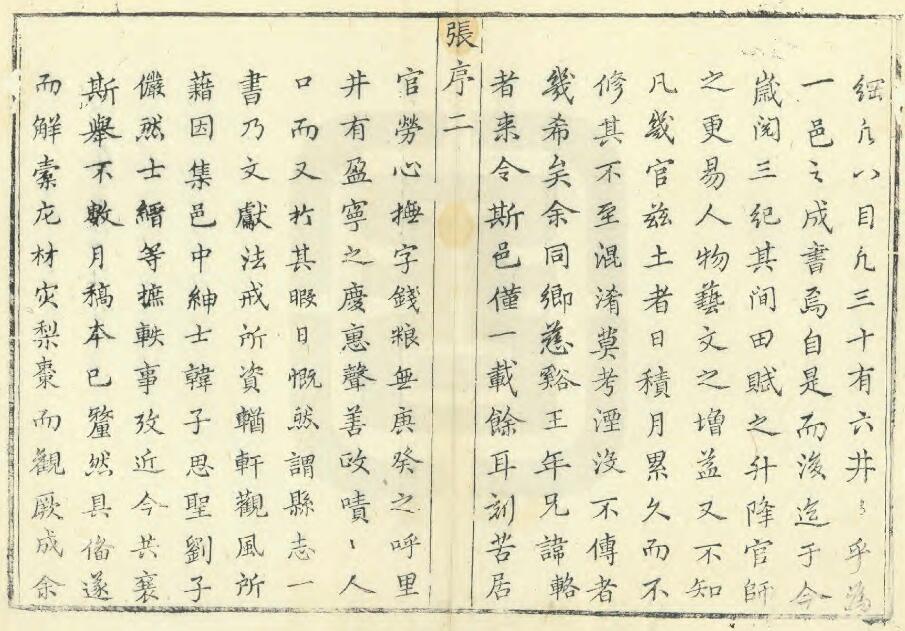 綱凡八目凡三十有六井〻乎為
一邑之成書焉自是而後迄于今
嵗閱三紀其间田賦之升降官師
之更易人物藝文之增益又不知
凡幾官兹土者日積月累久而不
修其不至混淆莫考湮没不傳者
幾希矣余同鄉慈谿王年兄諱輅
者来令斯邑僅一載餘耳刻苦居
張序二
官勞心撫字錢粮無庚癸之呼里
井有盈寧之慶惠聲善政嘖〻人
口而又扵其暇日慨然謂縣志一
書乃文獻法戒所資輶軒觀風所
藉因集邑中紳士韓子思聖劉子
儼然士繒等摭軼事攷近今共襄
斯舉不數月稿本已釐然具俻遂
而解橐庀材灾梨棗而觀厥成余